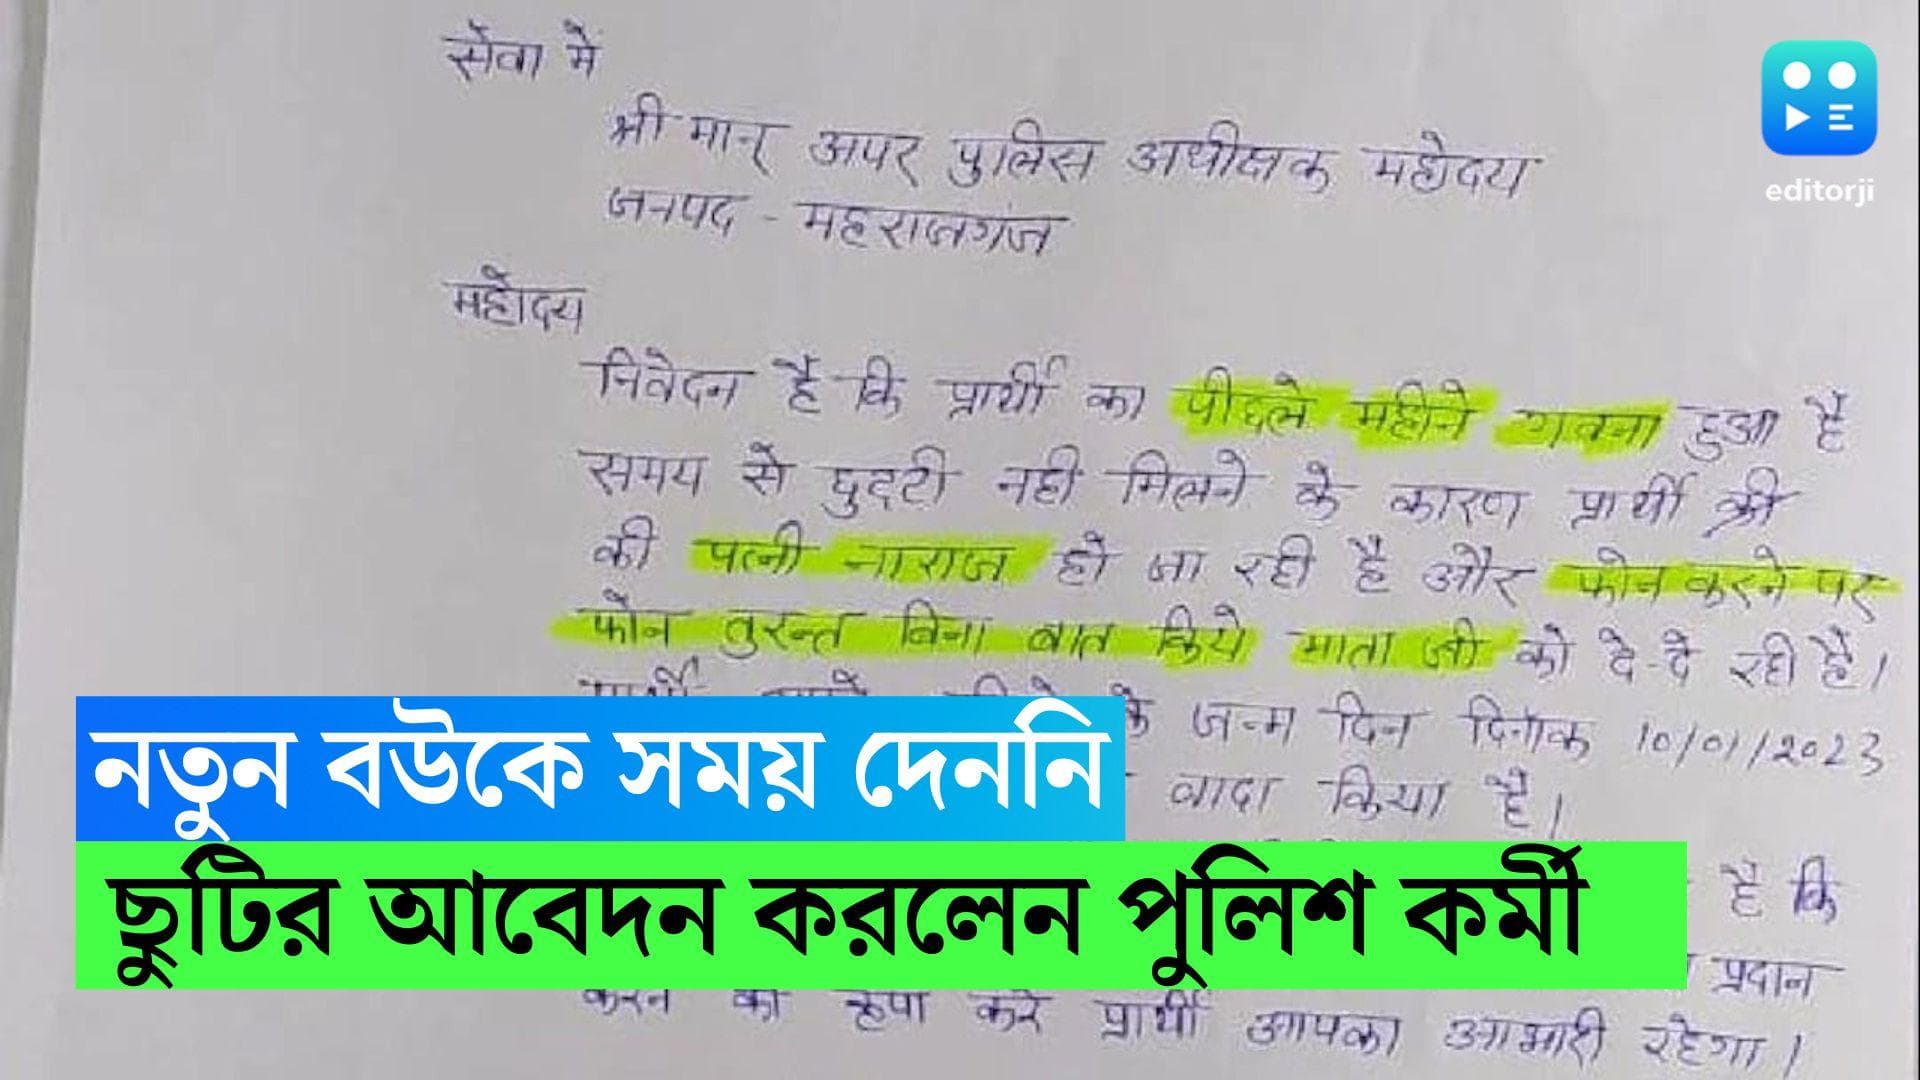 सेवा में
editorji
श्री मान् अपर पुलिस अधीक्षक महोदय
जनपद - महराजगंज
महोदय
निवेदन है कि प्रार्थी का पीछले महीने गवना हुआ है
समय से छुट्टी नही मिलने के कारण प्रार्थी
की पत्नी नाराज हो जा रही है और फोन करने पर
फोन तुरन्त बिना बात किये माता जी को दे-दे रही है।
के जन्म दिन दिनांक 10/01/2023
वादा किया है।
নতুন বউকে সময় দেননি
ছুটির আবেদন করলেন পুলিশ কর্মী
है कि
प्रदान
करने की कृपा करे प्रार्थी आपका आभारी रहेगा।